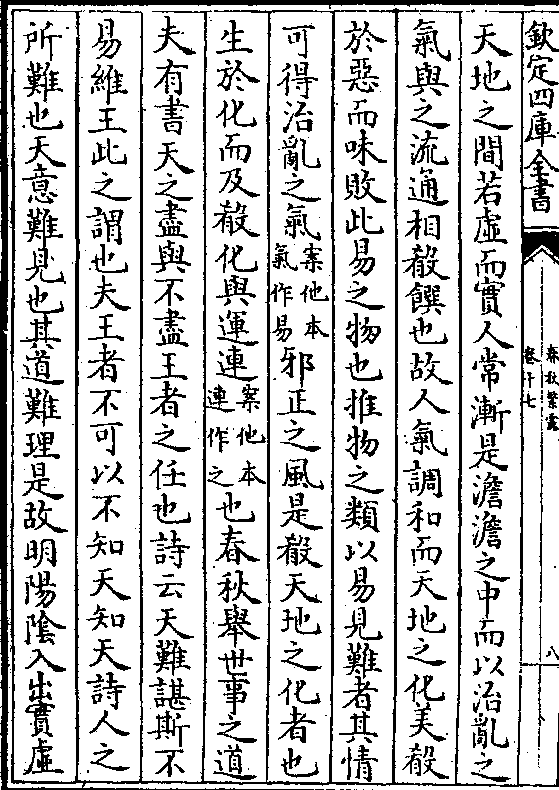 欽定四庫全書
春秋繁露
卷十七
八
天地之間若虛而實人常漸是澹澹之中而以治亂之
氣與之流通相殽饌也故人氣調和而天地之化美殽
於惡而味敗此易之物也推物之類以易見難者其情
可得治亂之氣案他本氣作易邪正之風是殽天地之化者也
生於化而反殽化與運連案他本連作之也春秋舉世事之道
夫有書天之盡與不盡王者之任也詩云天難諶斯不
易維王此之謂也夫王者不可以不知天知天詩人之
所難也天意難見也其道難理是故明陽陰入出實虛